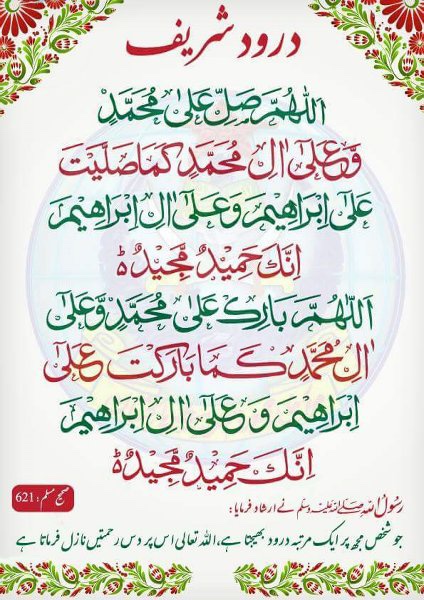 درود شریف
اَللّٰهُمَّ صَلِّ عَلٰى مُحَمَّدٍ
وَّعَلٰٓى اٰلِ مُحَمَّدٍ كَمَا صَلَّيْتَ
عَلٰٓى اِبْرَاهِيْمَ وَعَلٰٓى اٰلِ اِبْرَاهِيْمَ
اِنَّكَ حَمِيْدٌ مَّجِيْدٌ ط
اَللّٰهُمَّ بَارِكْ عَلٰى مُحَمَّدٍ وَّعَلٰٓى
اٰلِ مُحَمَّدٍ كَمَا بَارَكْتَ عَلٰٓى
اِبْرَاهِيْمَ وَ عَلٰٓى اٰلِ اِبْرَاهِيْمَ
اِنَّكَ حَمِيْدٌ مَّجِيْدٌ ط
صحیح مسلم: 621
رسول اللہ ﷺ نے ارشاد فرمایا:
جو شخص مجھ پر ایک مرتبہ درود بھیجتا ہے، اللہ تعالیٰ اس پر دس رحمتیں نازل فرماتا ہے